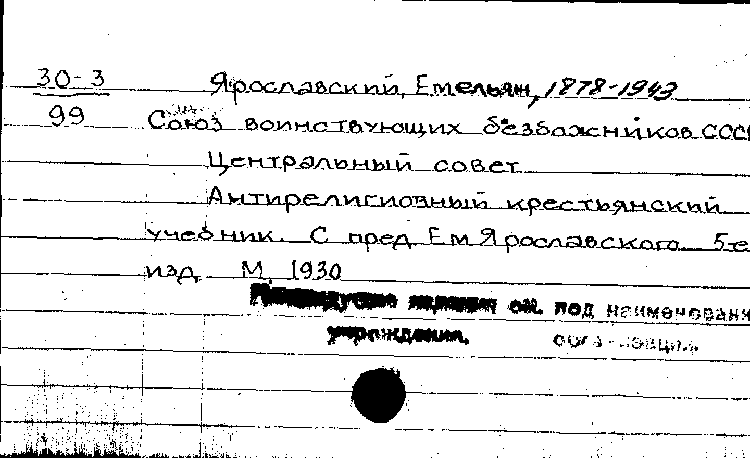 30-3 Ярославский, Емельян, 1878-1943
99 Союз воинствующих безбожников СССР
Центральный совет
Антирелигиозный крестьянский
учебник. С пред. Ем Ярославского 5-е
изд. М. 1930
издания см. под наименовани
учреждения. организации